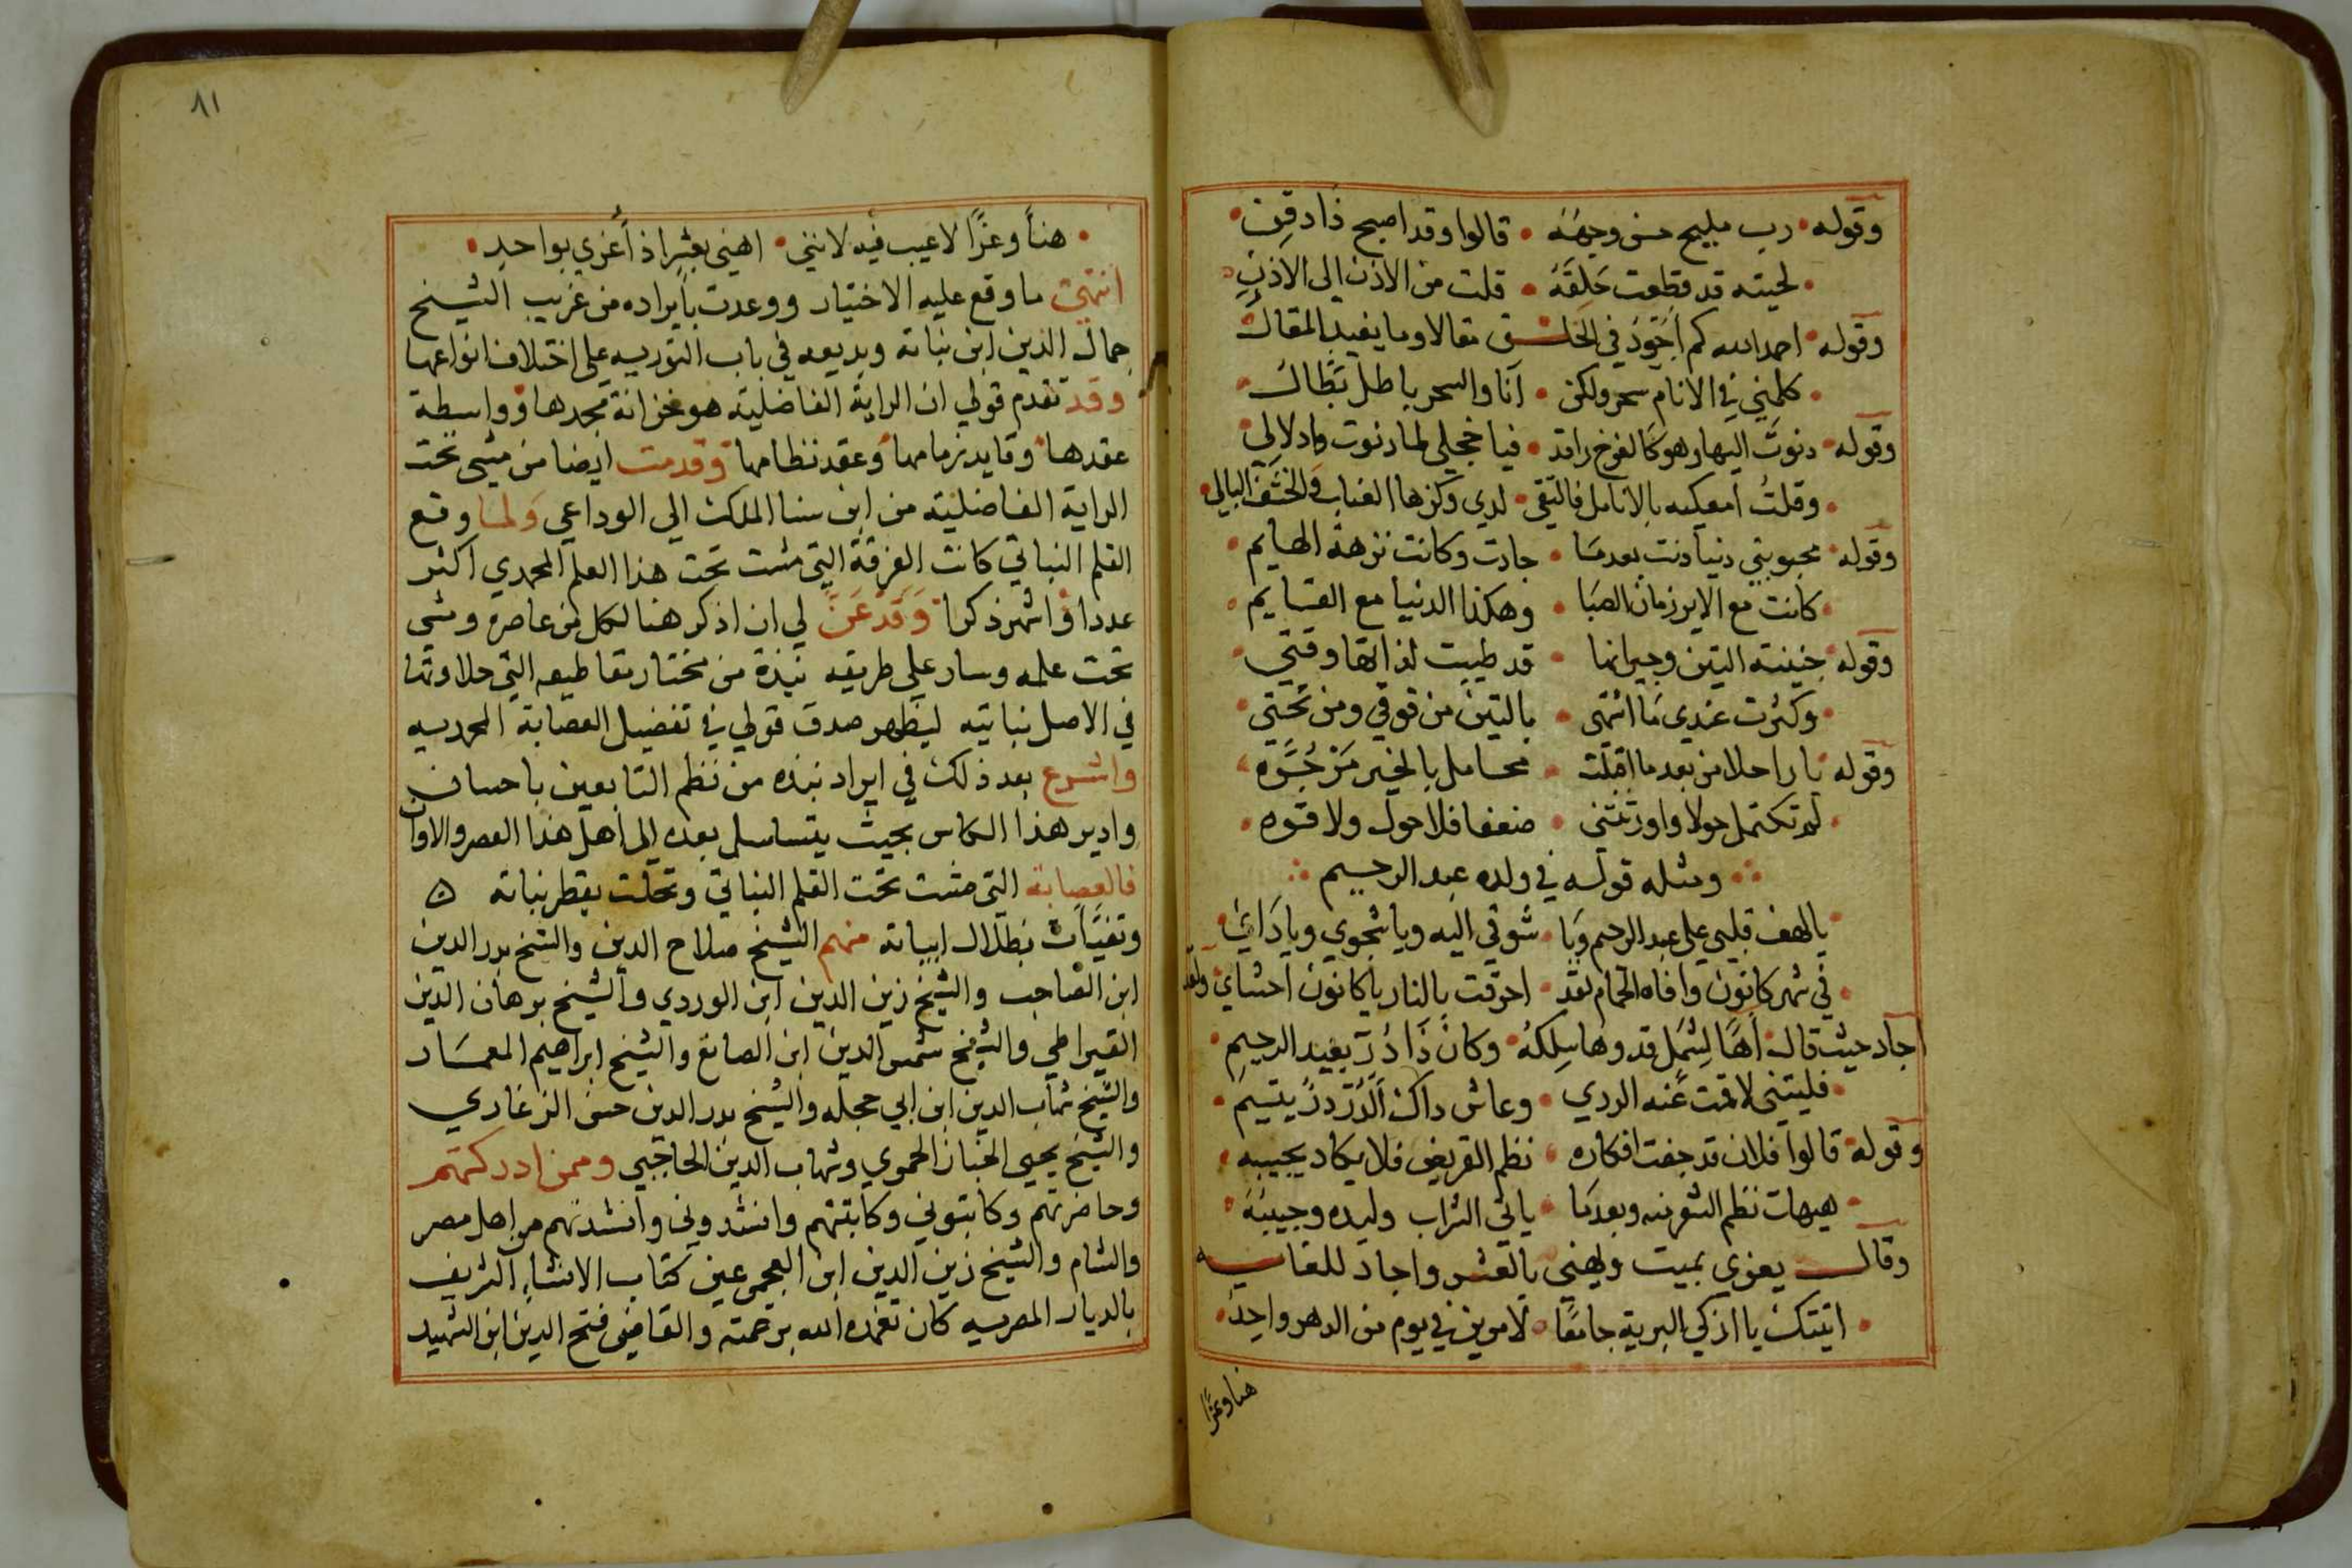 وقوله • رب مليح حسن وجهه • قالوا وقد اصبح ذا دقن •
• لحيته قد قطعت حلقه • قلت من الاذن الى الاذن
وقوله • احمد الله كم اجوّد في الخلق مقالا وما يفيد المقال
• كلمني في الانام سحر ولكن • انا والسحر باطل بطال •
وقوله • دنوت اليها وهو كالفرخ راقد • فيا خجلي لما دنوت وادلالي •
• وقلت امعكيه بالانامل فالتقى • لدي وكرها العناب والحشف البالي •
وقوله • محبوبتي دنيا دنت بعدما • جادت وكانت نزهة الهايم •
• كانت مع الاير زمان الصبا • وهكذا الدنيا مع القايم •
وقوله • جنينة التين وجيرانها • قد طيبت لذاتها وقتي •
• وكثرت عندي ما اشتهى • بالتين من فوقي ومن تحتي •
وقوله • يا راحلا من بعد ما اقبلت • محامل بالخير مرجوّه •
• لم تكتمل حولا واورثتني • ضعفا فلا حول ولا قوه •
ومثله قوله في ولده عبد الرحيم
• يا لهف قلبي على عبد الرحيم ويا • شوقي اليه ويا شجوي ويا دائي •
• في شهر كانون وافاه الحمام لقد • احرقت بالنار يا كانون احشاي • ولقد
اجاد حيث قال • اها لشمل قد وها سلكه • وكان ذا در بعبد الرحيم •
• فليتني لاقيت عنه الردي • وعاش ذاك الدر در يتيم •
وقوله • قالوا فلان قد جفت افكاره • نظم القريض فلا يكاد يجيبه •
• هيهات نظم الشعر منه وبعدما • ياتي التراب وليده وحبيبه •
وقال يعزي بميت ويهني بالعشر واجاد للغايه
• اتيتك يا ازكى البرية جامعا • لامرين في يوم من الدهر واحد •
هنا وعزًا
٨١
• هنأ وعزًا لا عيب فيه لانني • اهني بعشر اذ أعزي بواحد •
انتهى ما وقع عليه الاختيار ووعدت بايراده من غريب الشيخ
جمال الدين ابن نباتة وبديعه في باب التوريه على اختلاف انواعها
وقد تقدم قولي ان الراية الفاضلية هو خزانة مجدها وواسطة
عقدها وقايد زمامها وعقد نظامها وقدمت ايضا من مشى تحت
الراية الفاضلية من ابن سنا الملك الى الوداعي ولما وقع
القلم النباتي كانت الفرقة التي مشت تحت هذا العلم المحمدي اكثر
عددا واشهر ذكرا وقد عن لي ان اذكر هنا لكل من عاصره ومشى
تحت علمه وسار على طريقه نبذة من مختار مقاطيعه التي حلاوتها
في الاصل نباتيه ليظهر صدق قولي في تفضيل العصابة المحمديه
واشرع بعد ذلك في ايراد نبذه من نظم التابعين باحسان
وادير هذا الكاس بحيث يتسلسل بعده الى اهل هذا العصر والاوان
فالعصابة التي مشت تحت القلم النباتي وتحلت بقطر نباته
وتفيّأت بظلال ابياته منهم الشيخ صلاح الدين والشيخ بدر الدين
ابن الصاحب والشيخ زين الدين ابن الوردي والشيخ برهان الدين
القيراطي والشيخ شمس الدين ابن الصائغ والشيخ ابراهيم المعمار
والشيخ شهاب الدين ابن ابي حجله والشيخ بدر الدين حسن الزغاري
والشيخ يحيى الخباز الحموي وشهاب الدين الحاجبي وممن ادركتهم
وحاضرتهم وكاتبوني وكاتبتهم وانشدوني وانشدتهم من اهل مصر
والشام والشيخ زين الدين ابن العجمي عين كتاب الانشاء الشريف
بالديار المصريه كان تغمده الله برحمته والقاضي فتح الدين ابن الشهيد